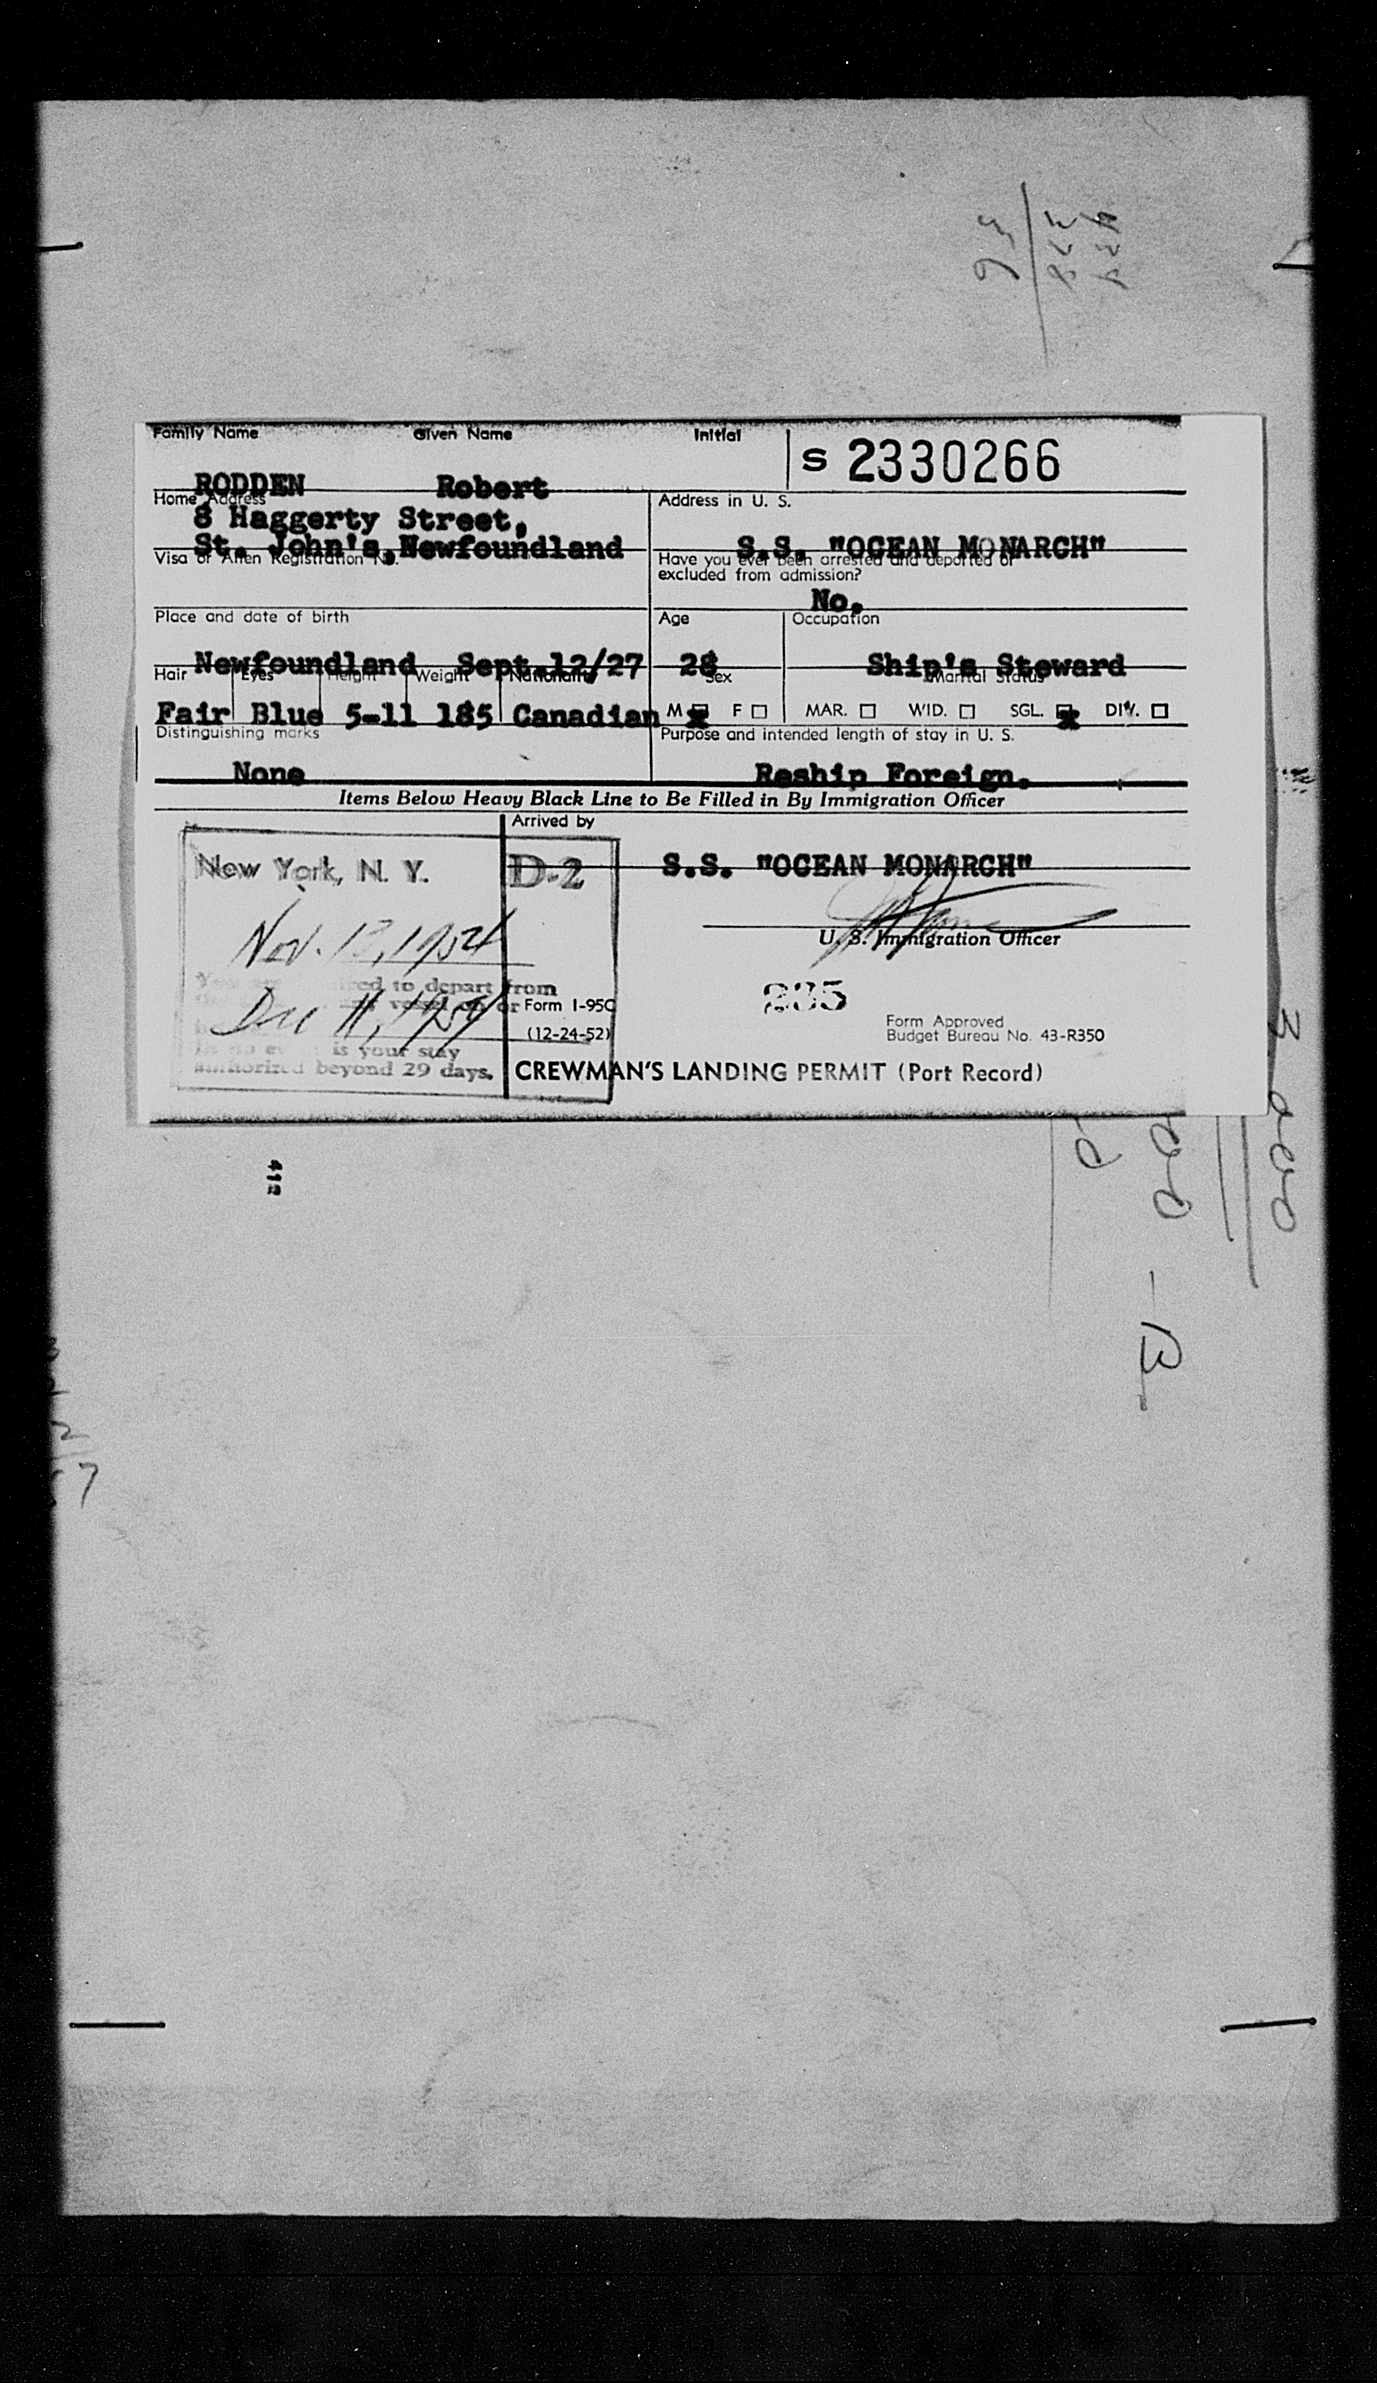 438
338
36
Family Name Given Name Initial
S 2330266
RODDEN Robert
Home Address Address in U. S.
8 Haggerty Street,
St. John's, Newfoundland S.S. "OCEAN MONARCH"
Visa or Alien Registration No. Have you ever been arrested and deported or
excluded from admission?
No.
Place and date of birth Age Occupation
Newfoundland Sept.12/27 28 Ship's Steward
Hair Eyes Height Weight Nationality Sex Marital Status
Fair Blue 5-11 185 Canadian M X F MAR. WID. SGL. X DIV.
Distinguishing marks Purpose and intended length of stay in U. S.
None Reship Foreign.
Items Below Heavy Black Line to Be Filled in By Immigration Officer
Arrived by
New York, N. Y. D-2 S.S. "OCEAN MONARCH"
Nov. 12, 1954
U. S. Immigration Officer
to depart from
Dec 11, 1954
Form I-95C
(12-24-52)
235
Form Approved
Budget Bureau No. 43-R350
is your stay
authorized beyond 29 days.
CREWMAN'S LANDING PERMIT (Port Record)